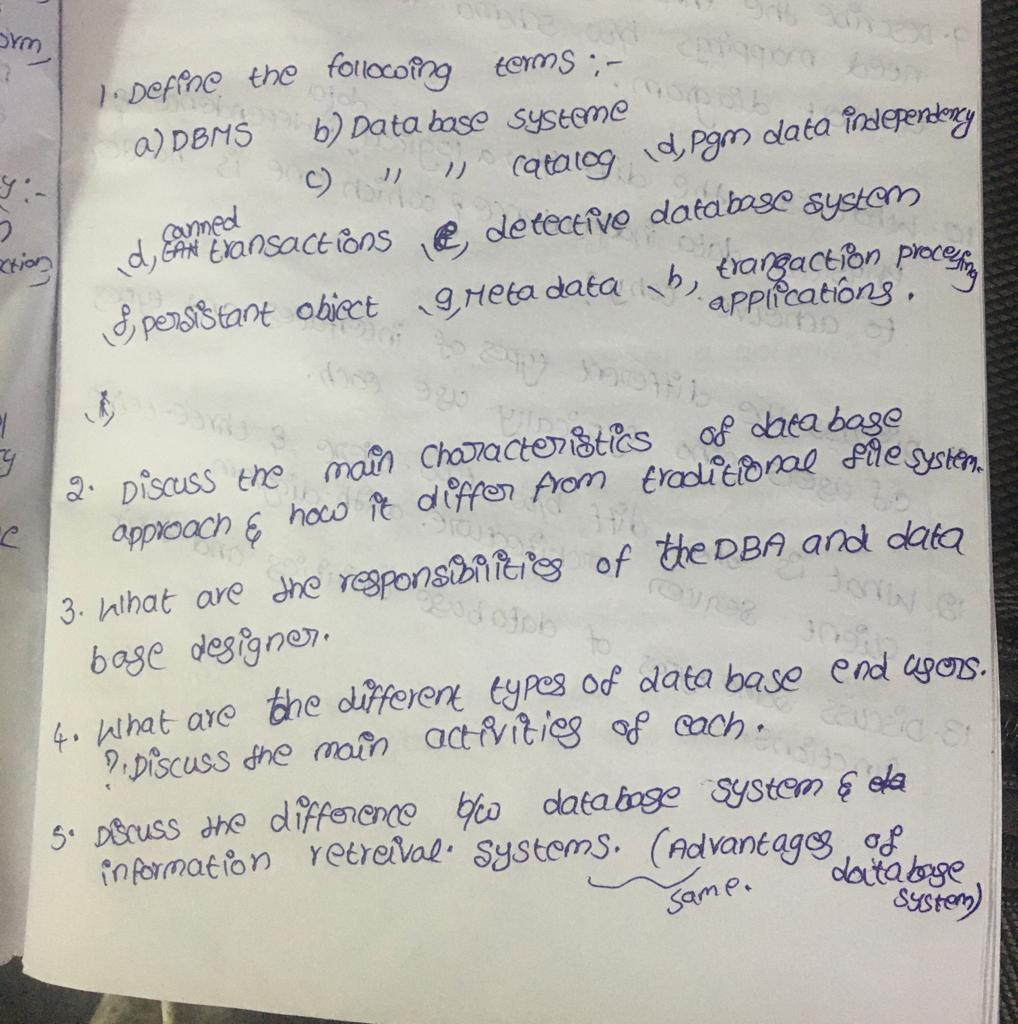 orm
1. Define the following terms :-
a) DBMS b) Data base systeme
c) " " catalog d, Pgm data independency
y:-
canned
d, transactions e, detective database system
ction
f, persistant object g, Meta data h, transaction procesing
applications.
2. Discuss the main characteristics of data base
approach & how it differ from traditional file system.
3. What are the responsibilities of the DBA and data
base designer.
4. What are the different types of data base end users.
?. Discuss the main activities of each.
5. Discuss the difference b/w database system & da
information retreival. systems. (Advantages of
database
same.
system)